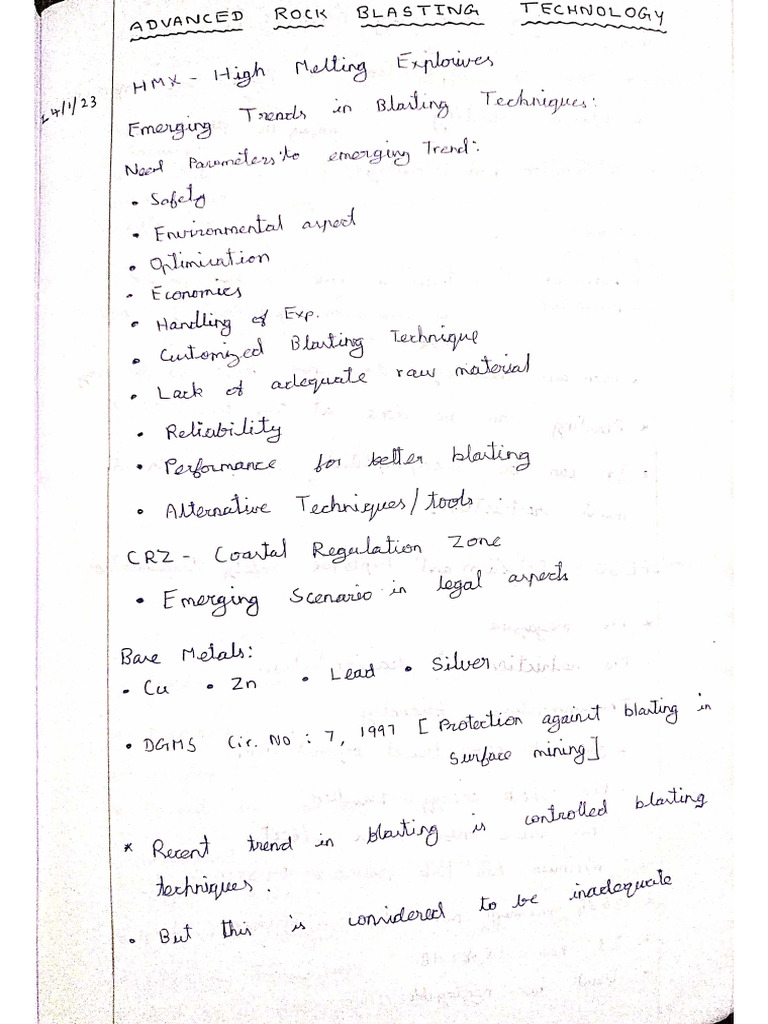 ADVANCED ROCK BLASTING TECHNOLOGY
24/1/23
HMX - High Melting Explosives
Emerging Trends in Blasting Techniques:
Need Parameters to emerging Trend:
• Safety
• Environmental aspect
• Optimisation
• Economics
• Handling of Exp.
• Customized Blasting Technique
• Lack of adequate raw material
• Reliability
• Performance for better blasting
• Alternative Techniques/tools
CRZ - Coastal Regulation Zone
• Emerging Scenario in legal aspects
Base Metals:
• Cu • Zn • Lead • Silver
• DGMS Cir. No : 7, 1997 [Protection against blasting in
surface mining]
* Recent trend in blasting is controlled blasting
techniques.
• But this is considered to be inadequate